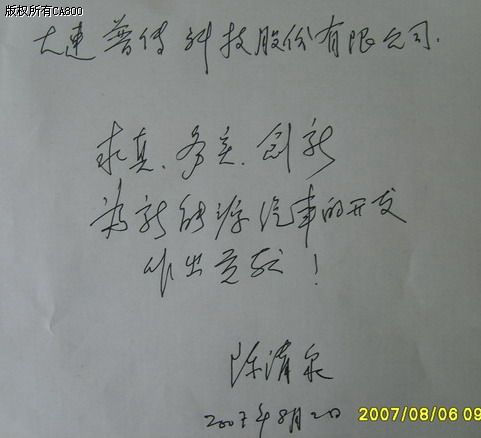 版权所有CA800
大连普传科技股份有限公司.
求真、务实、创新
为新能源汽车的开发
作出贡献!
陈清泉
2007年8月2日
2007/08/06 09